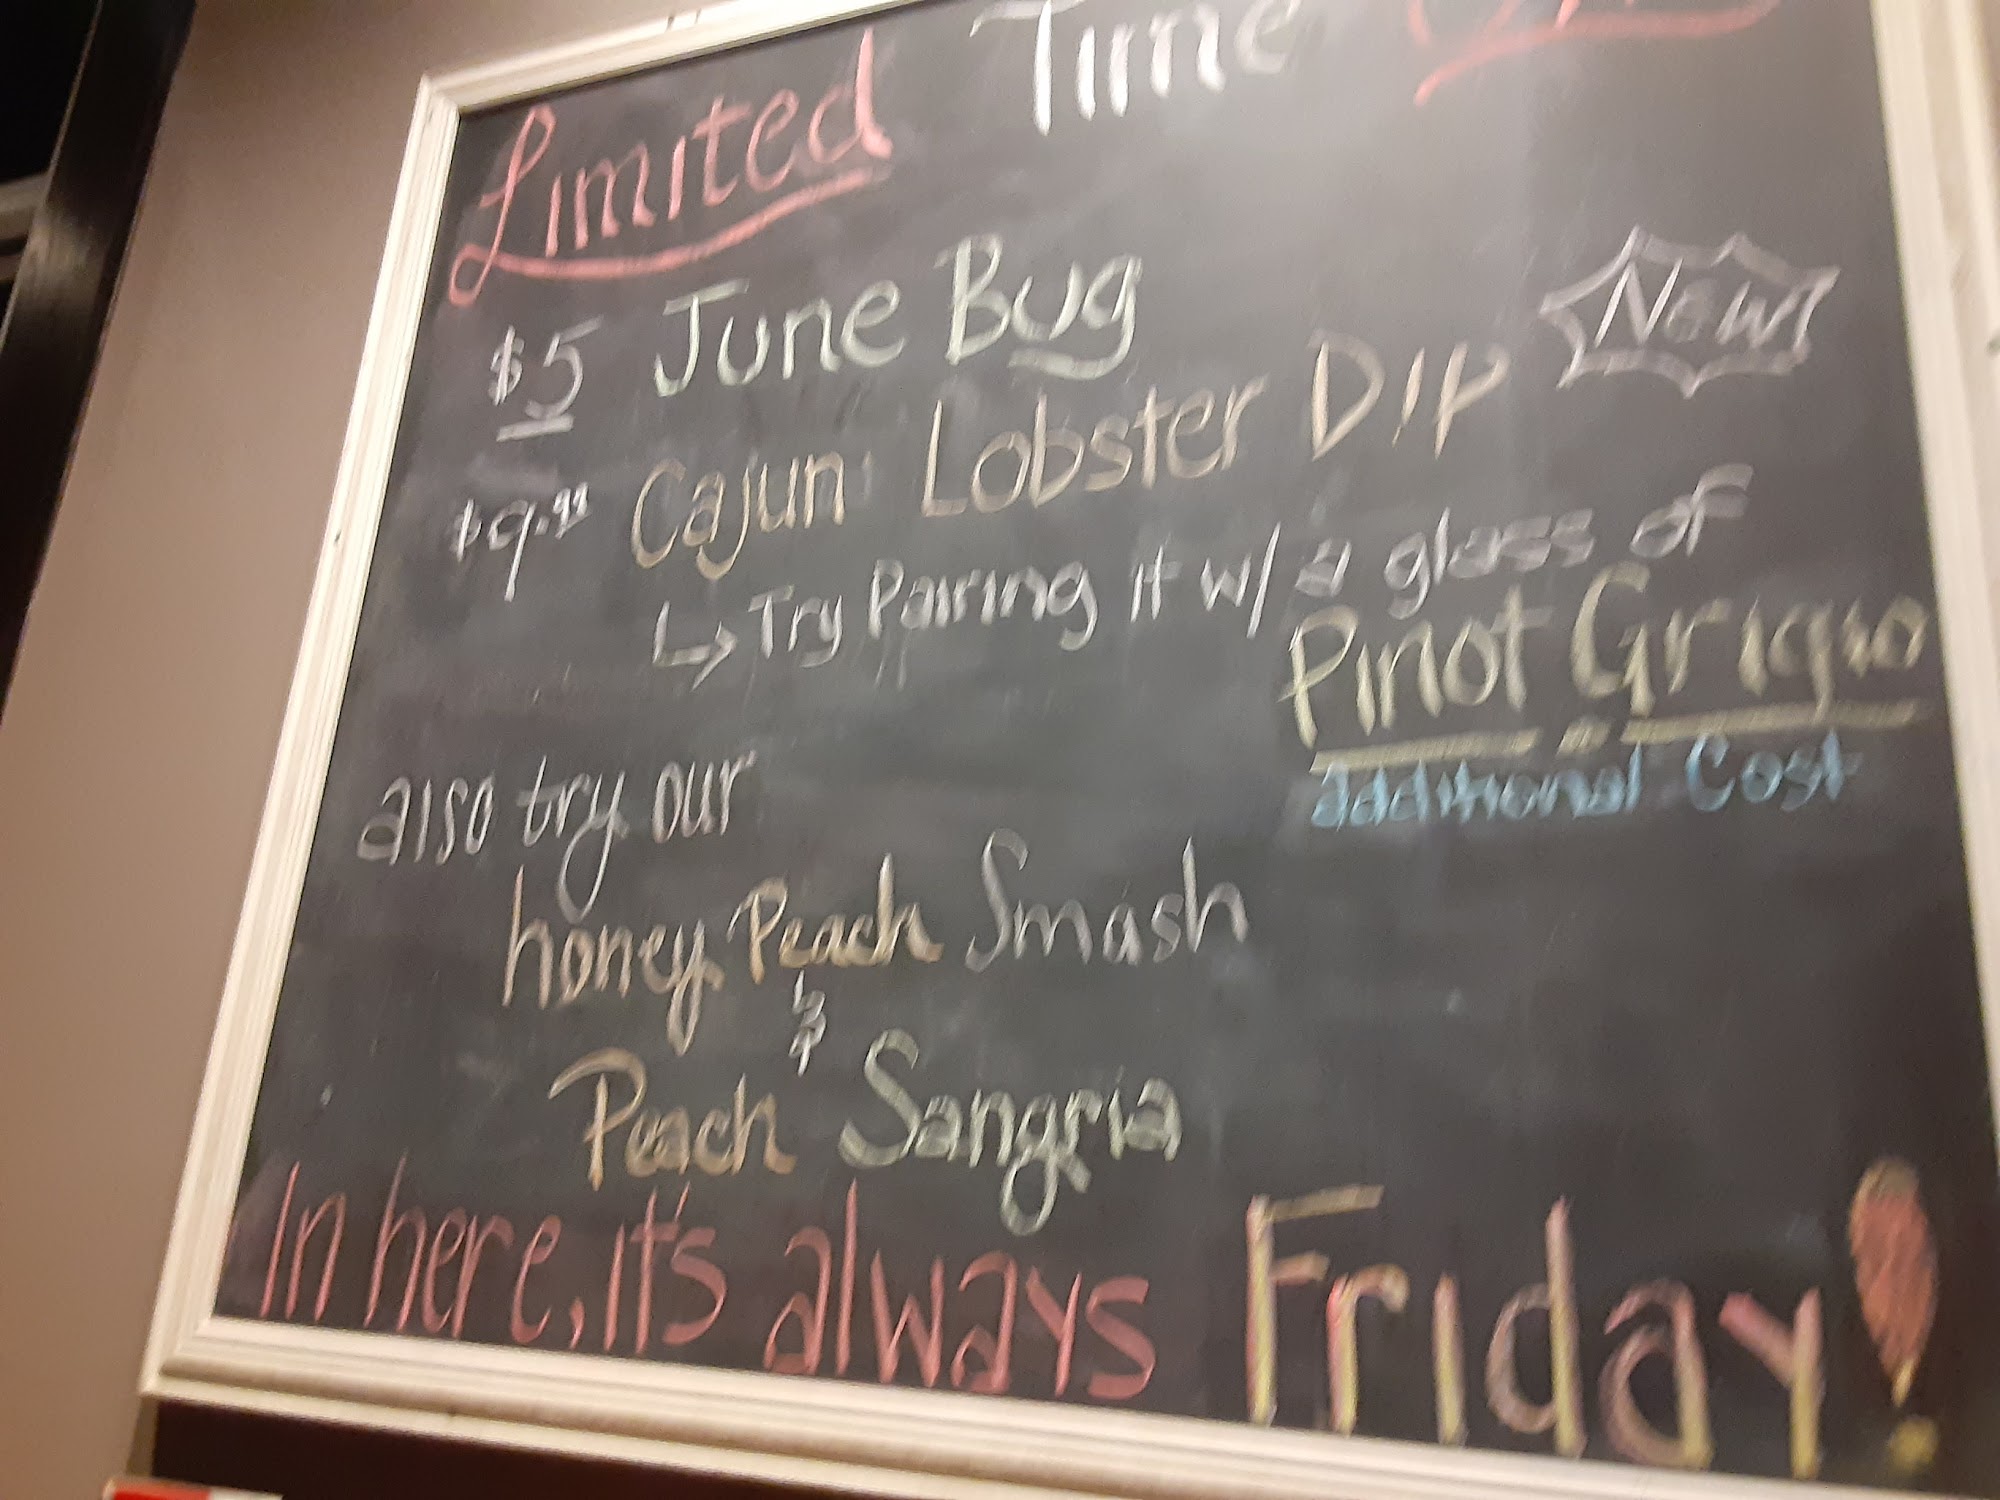 Limited Time
$5 June Bug
New
$9.99 Cajun Lobster Dip
↳ Try Pairing it w/ a glass of
Pinot Grigio
additional Cost
also try our
honey Peach Smash
&
Peach Sangria
In here, it's always Friday!